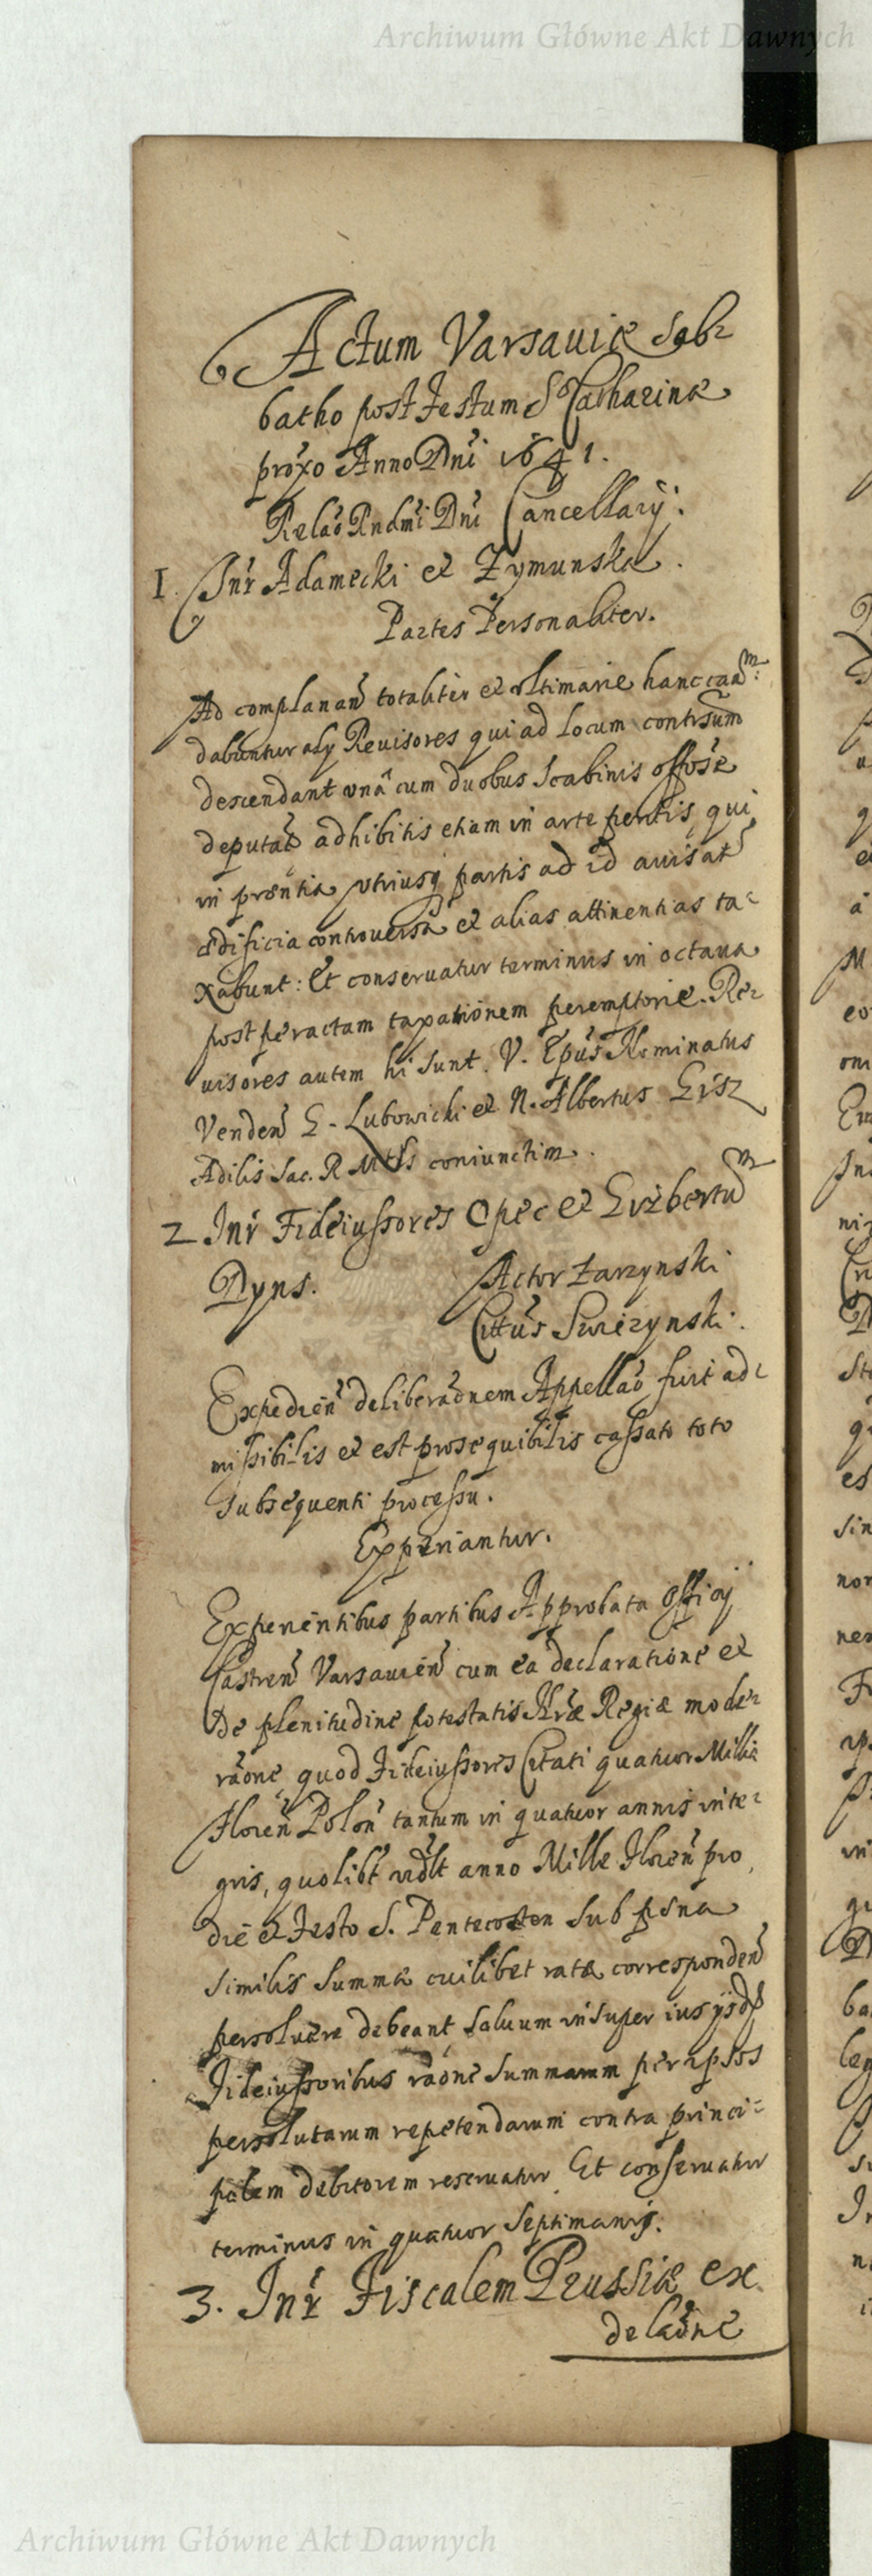 Archiwum Główne Akt Dawnych
Actum Varsaviæ Sab=
batho post Festum S Catharinæ
proxo Anno Dni 1641.
Relao Rndmi Dni Cancellarij:
1. Inr Adamecki et Zymunska.
Partes Personaliter.
Ad complanan totaliter et ultimarie hanc caam:
dabuntur alij Revisores qui ad Locum contrsum
descendant una cum duobus Scabinis offose
deputat adhibitis etiam in arte peritis, qui
in prontia utriusq partis ad id avisat
ædificia controversa et alias attinentias ta=
xabunt: Et conservatur terminus in octava
post peractam taxationem peremptorie. Re=
visores autem hi sunt. V. Epus Nominatus
Venden G. Lubowicki et N. Albertus Gisz
Ædilis Sac. R Mtis coniunctim.
2 Inr Fideiussores Opec et Gizbertum
Dyns. Actor Zarzynski
Cittus Swiezynski.
Expedien deliberaonem Appellao fuit ad=
missibilis et est prosequibilis cassato toto
subsequenti processu.
Experiantur.
Experientibus partibus Approbata Officij
Castren Varsavien cum ea declaratione et
De plenitudine potestatis Nræ Regiæ mode=
raone, quod Fideiussores Citati quatuor Millia
Floren Polon tantum in quatuor annis inte=
gris, quolibt vidlt anno Mille Floren pro
die et Festo S. Pentecosten sub pæna
similis summæ cuilibet ratæ corresponden
persolvere debeant salvum insuper ius ijsd
Fideiussoribus raone summarum per ipsos
persolutarum repetendarum contra princi=
palem debitorem reservatur. Et conservatur
terminus in quatuor septimanis.
3. Inr Fiscalem Prussiæ ex
delaone
Archiwum Główne Akt Dawnych